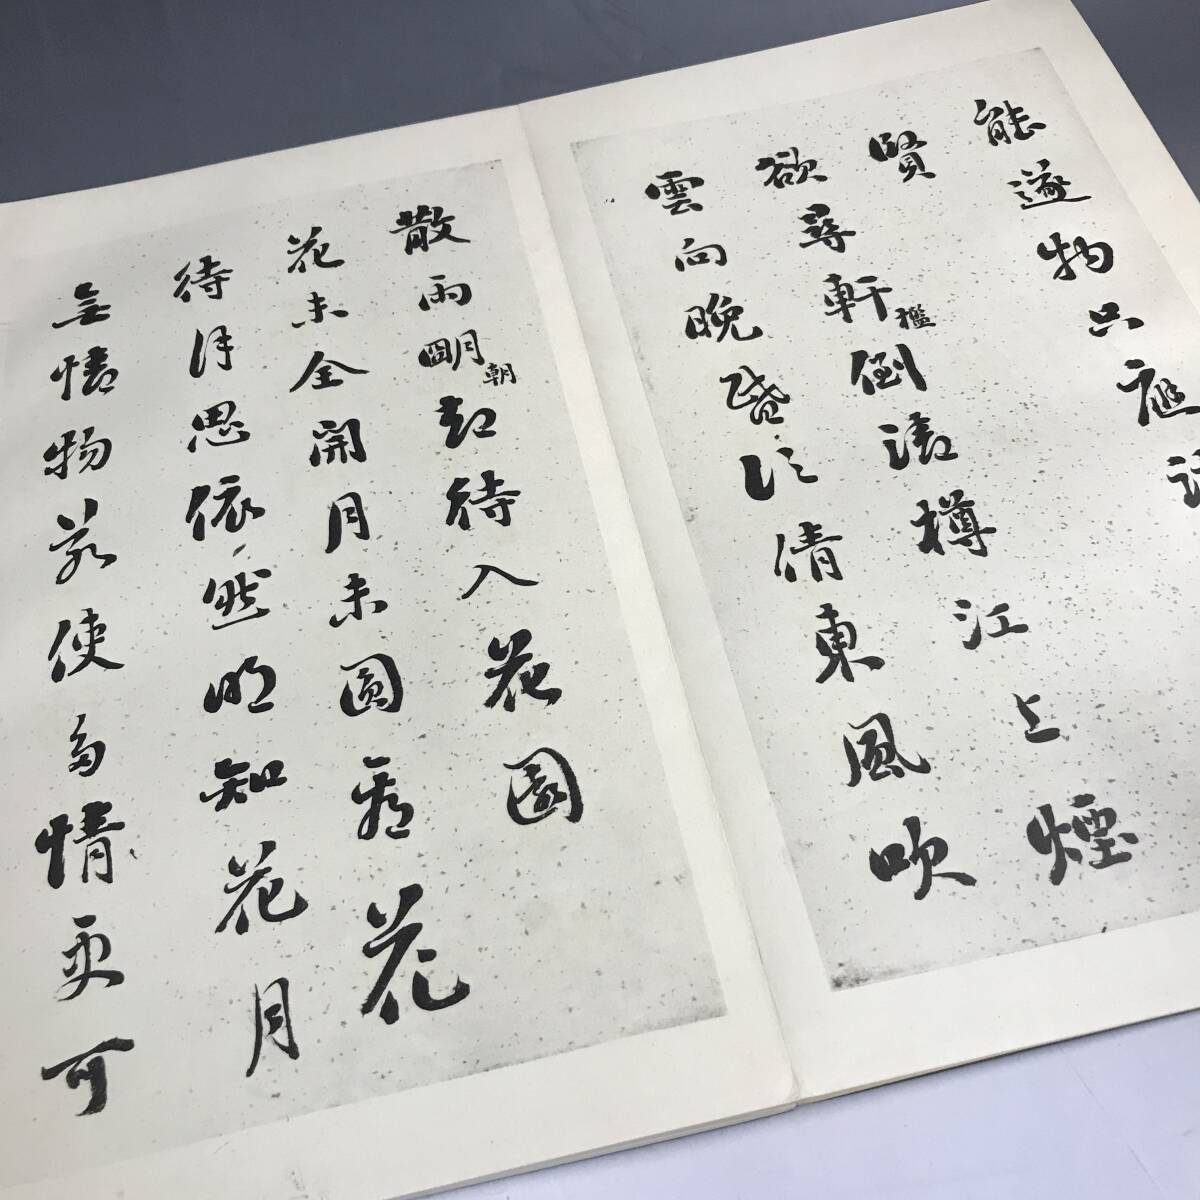 能遂物只應
賢
欲尋軒檻倒清樽江上煙
雲向晚昏須倩東風吹
散雨明朝却待入花園
花未全開月未圓看花
待月思依然明知花月
無情物若使多情更可